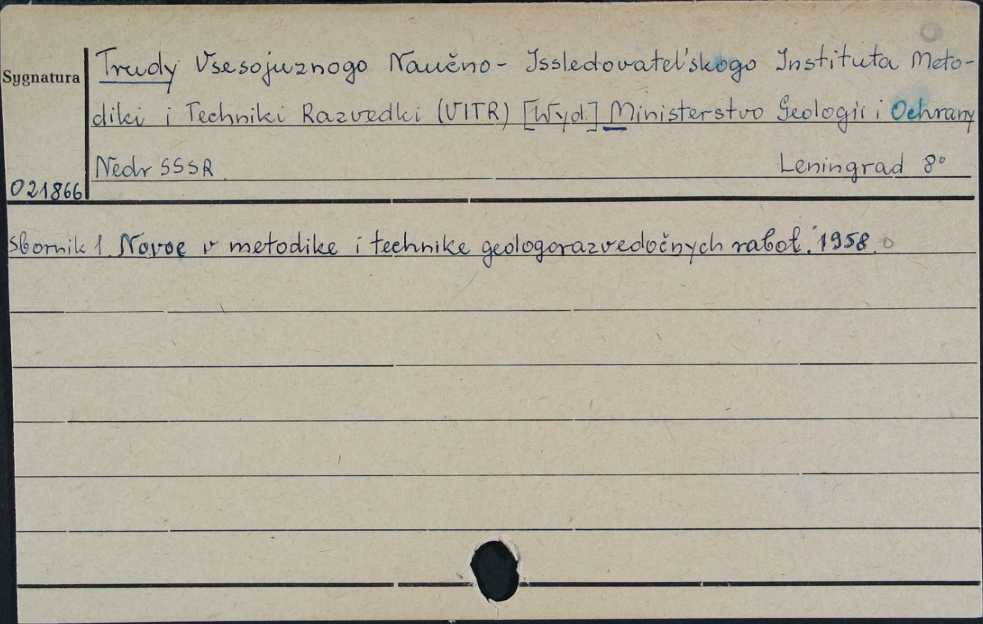 Sygnatura
Trudy Vsesojuznogo Naučno-Issledovatel'skogo Instituta Meto-
diki i Techniki Razvedki (VITR) [Wyd.] Ministerstvo Geologii i Ochrany
Nedr SSSR Leningrad 8°
021866
Sbornik 1. Novoe v metodike i technike geologorazvedočnych rabot. 1958.